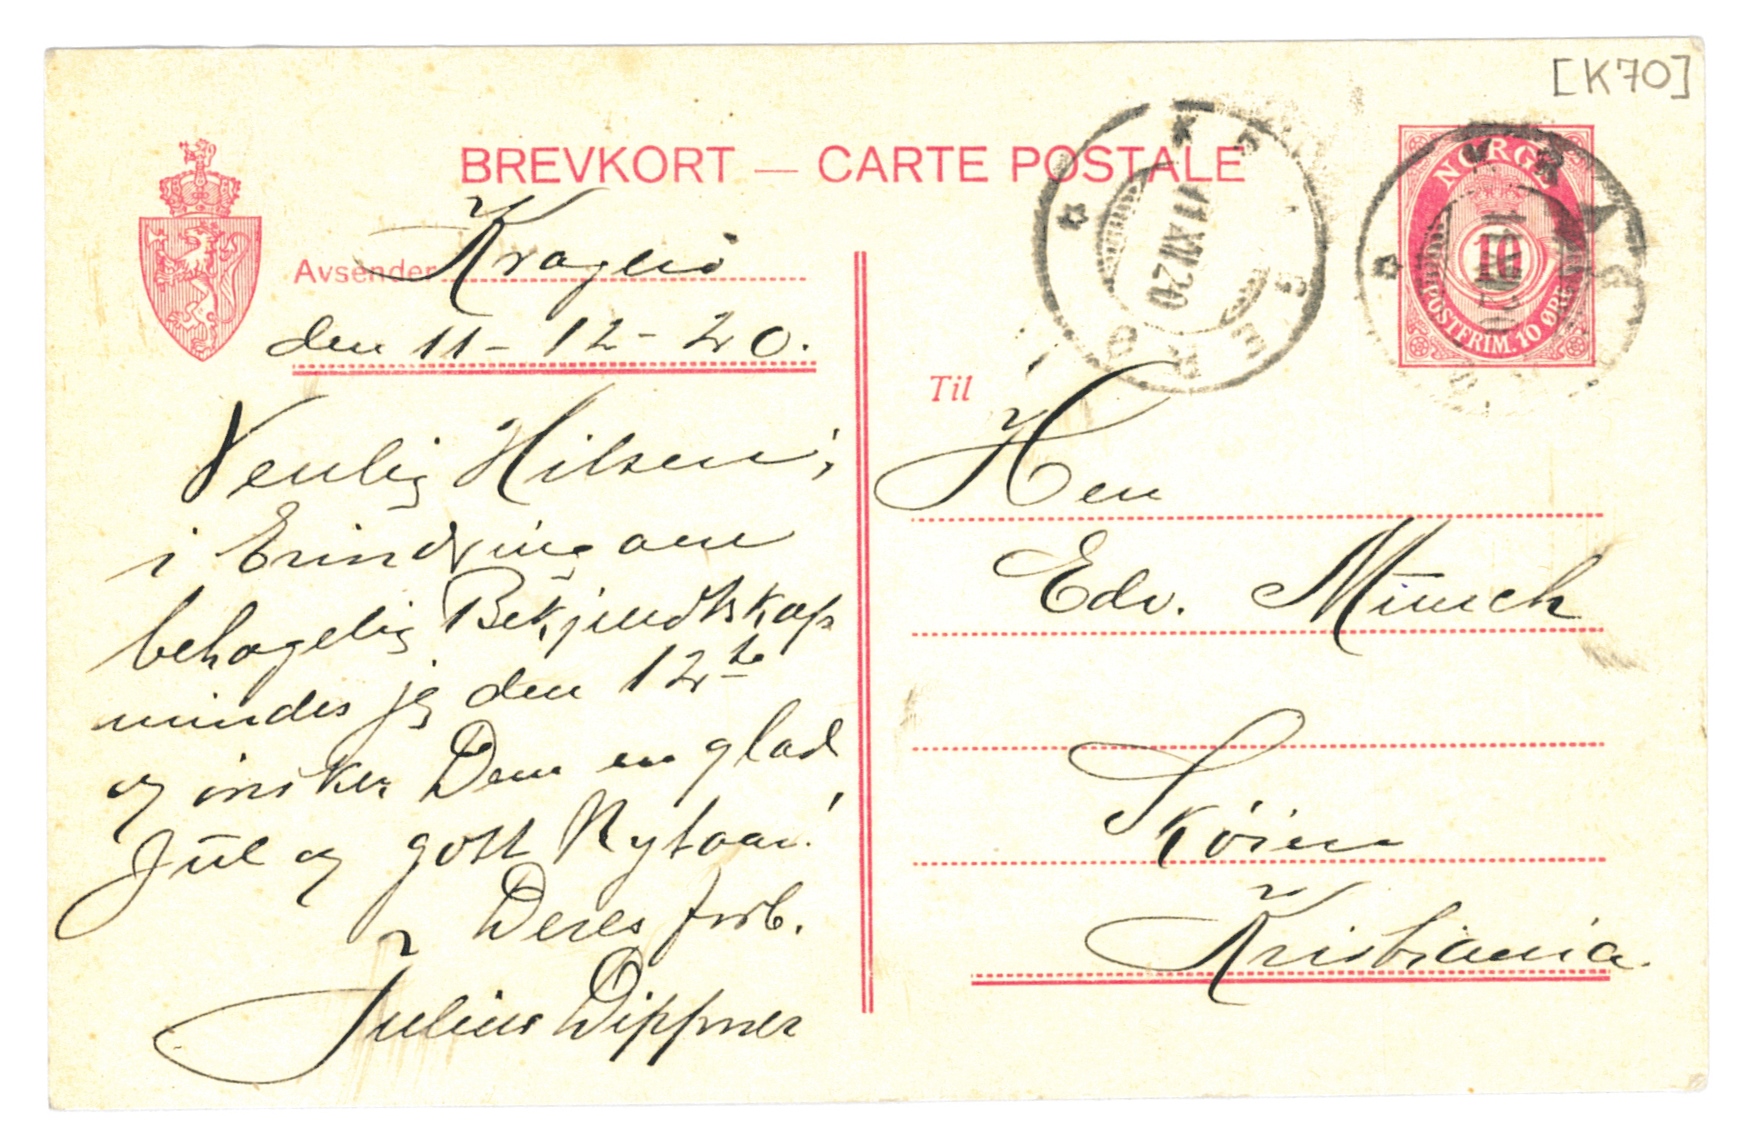 [K70]
BREVKORT — CARTE POSTALE
NORGE
10
POSTFRIM. 10 ØRE
KRAGERØ
11 XII 20
Avsender Kragerö
den 11-12-20.
Venlig Hilsen,
i Erindring om
behagelig Bekjendtskap
mindes jeg den 12te
og önsker Dem en glad
Jul og godt Nytaar!
Deres forb.
Julius Dippner
Til
Herr
Edv. Munch
Skøien
Kristiania.